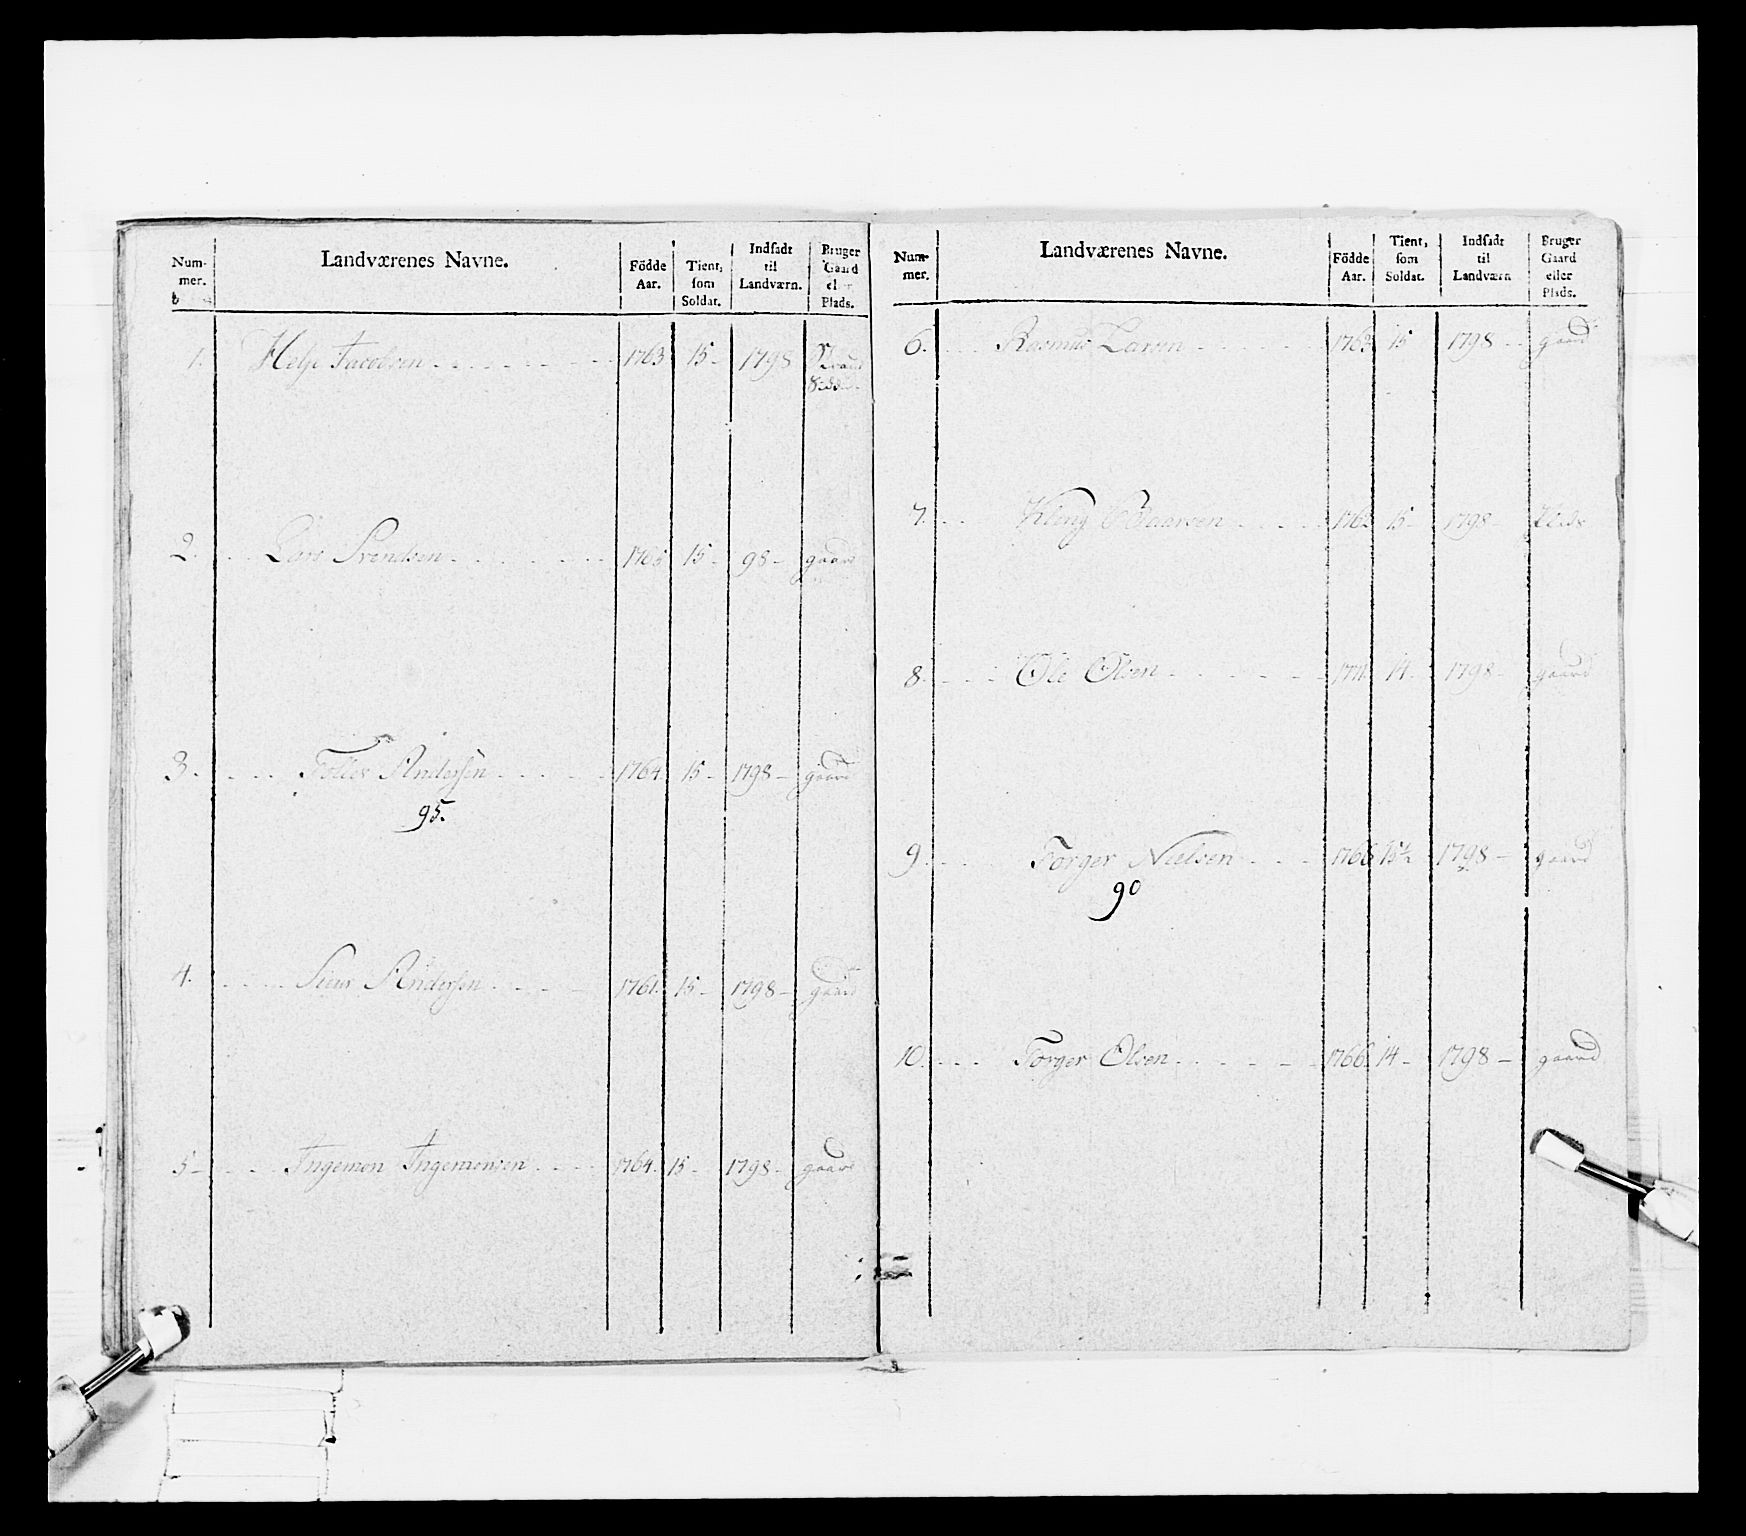 Num-mer. Landværenes Navne. Födde Aar. Tient, som Soldat. Indsadt til Landværn. Bruger Gaard eller Plads.
1. Helje Jacobsen 1763 15 - 1798 Strand Sidder
2. Lars Svendsen 1765 15 - 98 - gaard
3. Tolles Andersen 1764 15 - 1798 - gaard
95.
4. Siur Andersen 1761. 15 - 1798 - gaard
5 - Ingemon Ingemonsen 1764. 15 - 1798 - gaard
Num-mer. Landværenes Navne. Födde Aar. Tient, som Soldat. Indsadt til Landværn Bruger Gaard eller Plads.
6. Rasmus Larsen 1763 15 1798 - gaard
7. 15 - 1798 Plads
8. Ole Olsen 1771. 14 - 1798 - gaard
9. Torger Nielsen 1766 15½ 1798 - gaard
90
10. Torger Olsen 1766. 14 - 1798 - gaard